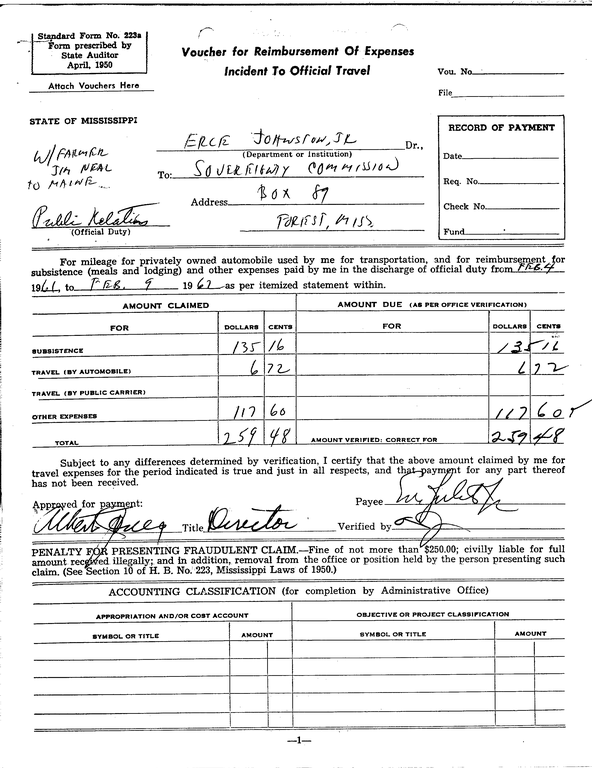 Standard Form No. 223a
Form prescribed by
State Auditor
April, 1950
Attach Vouchers Here
Voucher for Reimbursement Of Expenses
Incident To Official Travel
Vou. No.
File
STATE OF MISSISSIPPI
W/ FARMER
JIM NEAL
TO MAINE
Public Relations
(Official Duty)
ERLE JOHNSTON, JR Dr.,
(Department or Institution)
To: SOVEREIGNTY COMMISSION
Address BOX 89
FOREST, MISS
RECORD OF PAYMENT
Date
Req. No.
Check No.
Fund
For mileage for privately owned automobile used by me for transportation, and for reimbursement for
subsistence (meals and lodging) and other expenses paid by me in the discharge of official duty from FEB. 4
1961, to FEB. 9 1962 as per itemized statement within.
AMOUNT CLAIMED AMOUNT DUE (AS PER OFFICE VERIFICATION)
FOR DOLLARS CENTS FOR DOLLARS CENTS
SUBSISTENCE 135 16 135 16
TRAVEL (BY AUTOMOBILE) 6 72 6 72
TRAVEL (BY PUBLIC CARRIER)
OTHER EXPENSES 117 60 117 60
TOTAL 259 48 AMOUNT VERIFIED: CORRECT FOR 259 48
Subject to any differences determined by verification, I certify that the above amount claimed by me for
travel expenses for the period indicated is true and just in all respects, and that payment for any part thereof
has not been received.
Approved for payment: Payee
Title Director Verified by
PENALTY FOR PRESENTING FRAUDULENT CLAIM.—Fine of not more than $250.00; civilly liable for full
amount received illegally; and in addition, removal from the office or position held by the person presenting such
claim. (See Section 10 of H. B. No. 223, Mississippi Laws of 1950.)
ACCOUNTING CLASSIFICATION (for completion by Administrative Office)
APPROPRIATION AND/OR COST ACCOUNT OBJECTIVE OR PROJECT CLASSIFICATION
SYMBOL OR TITLE AMOUNT SYMBOL OR TITLE AMOUNT
—1—